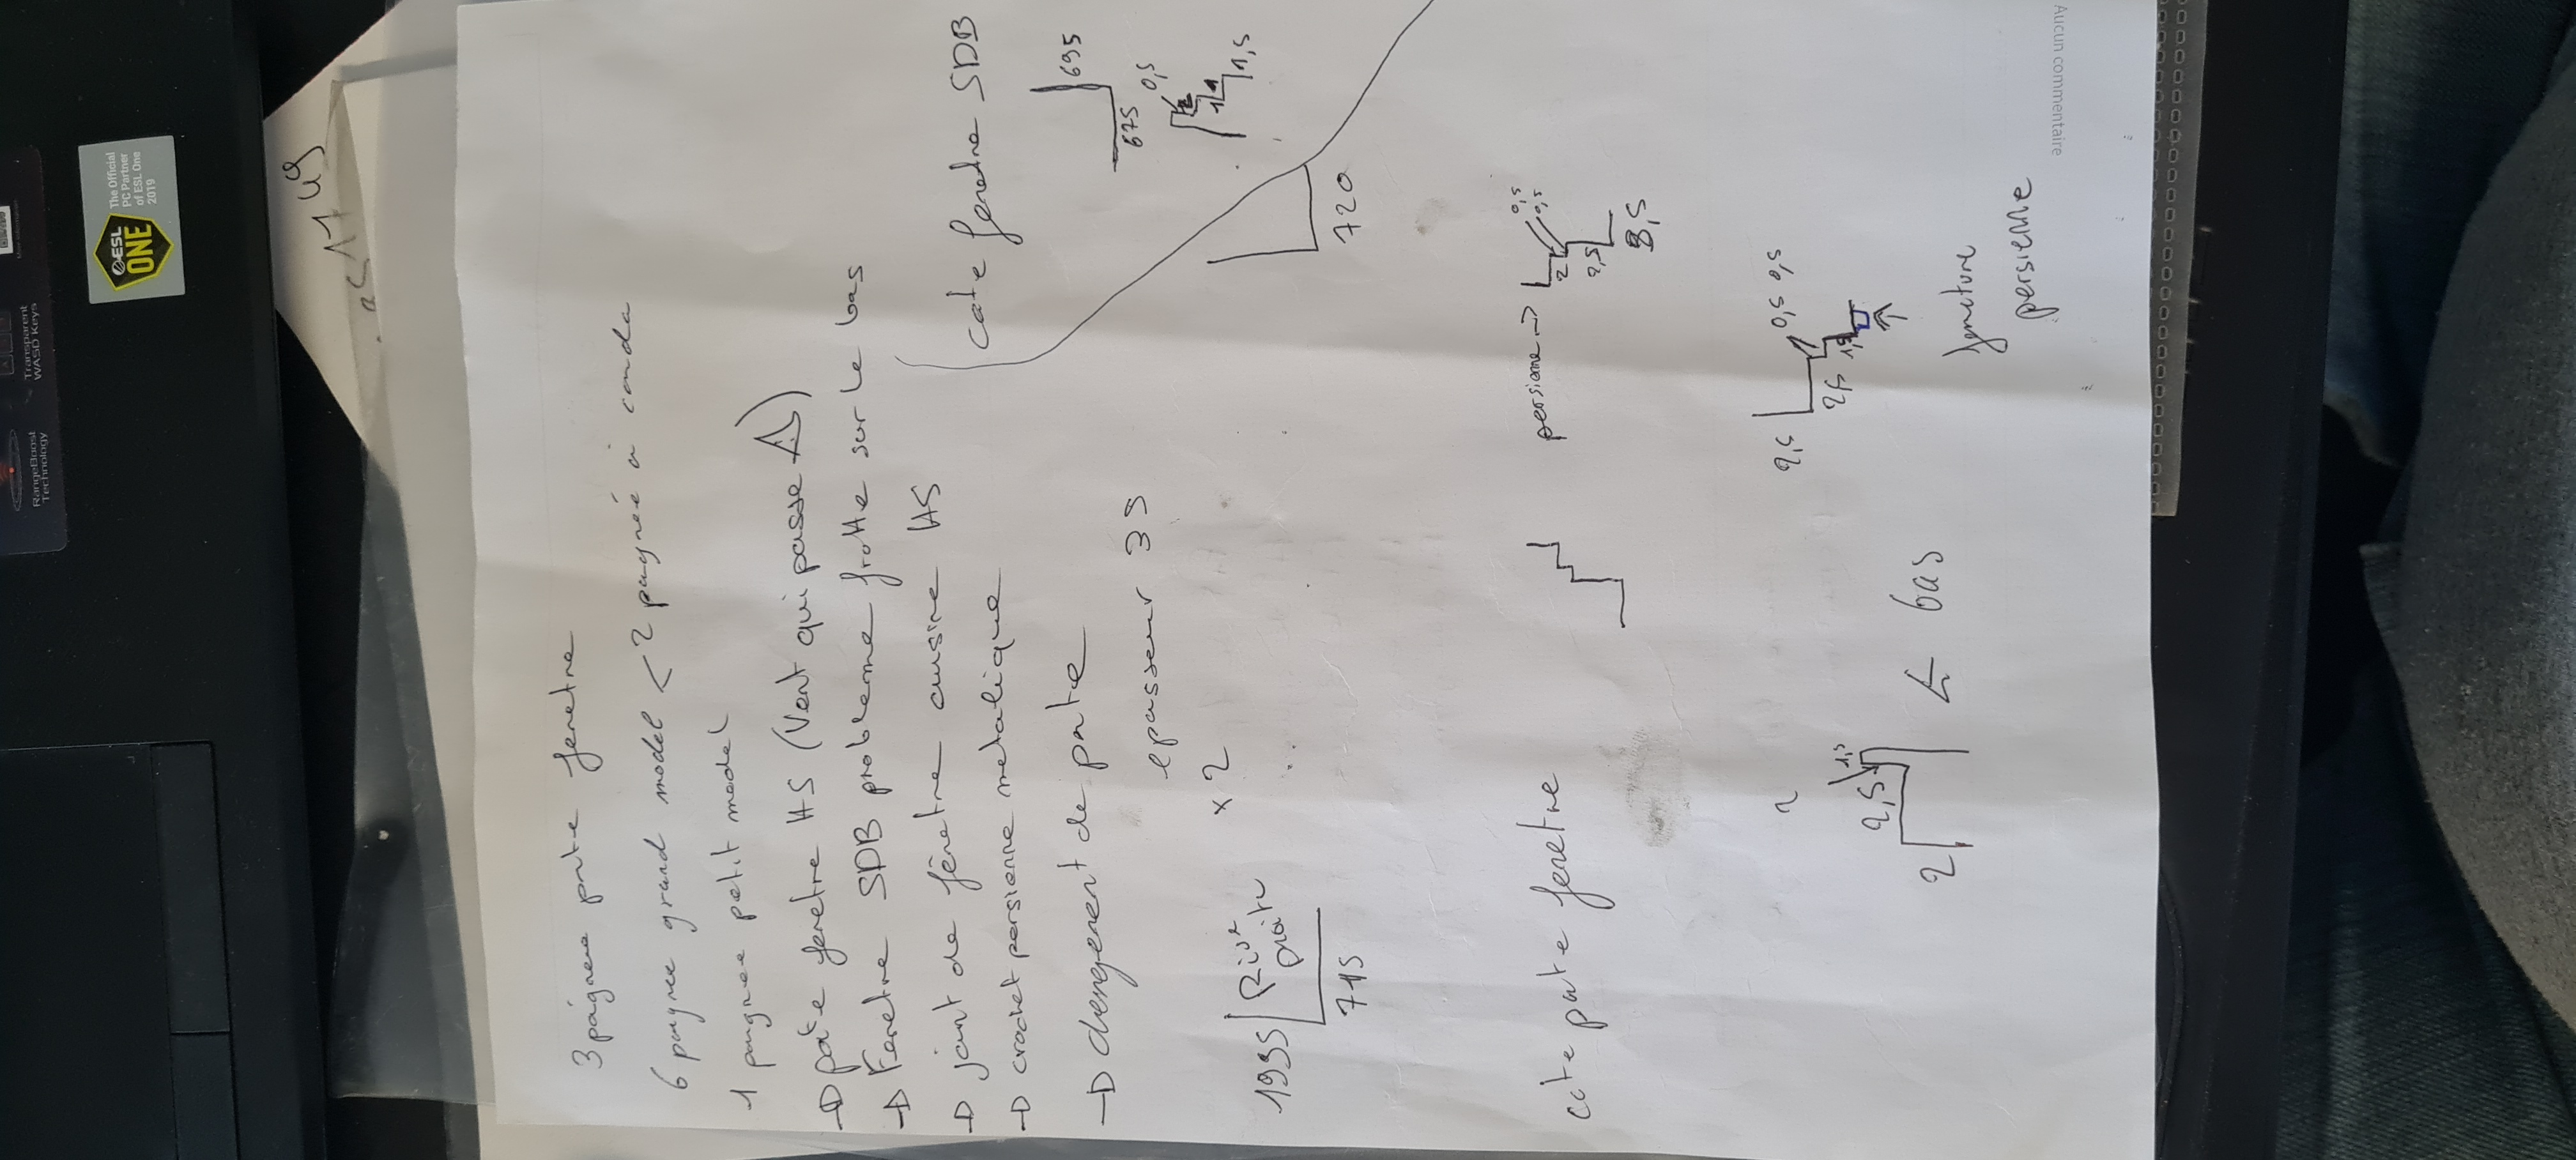 3 págnee porte fenetre
6 pognee grand model < 2 pognée à conda
1 pognee petit model
→ pote fenetre HS (Vent qui passe ⚠)
→ Fenetre SDB probleme frotte sur le bas
→ joint de fênetre cuisine HS
→ crochet persienne metalique
→ chengement de porte
epasseur 35
× 2
1935
Rive
droite
715
cote fenetre SDB
695
675
0,5
1
1,5
720
cote porte fenetre
persienne →
0,5
0,5
2
2,5
3,5
2
2,5
1,5
← bas
2,5
0,5 0,5
2,5
1,5
Joncture
persienne
Aucun commentaire
The Official
PC Partner
of ESL One
2019
ESL
ONE
Transparent
WASD Keys
RangeBoost
Technology